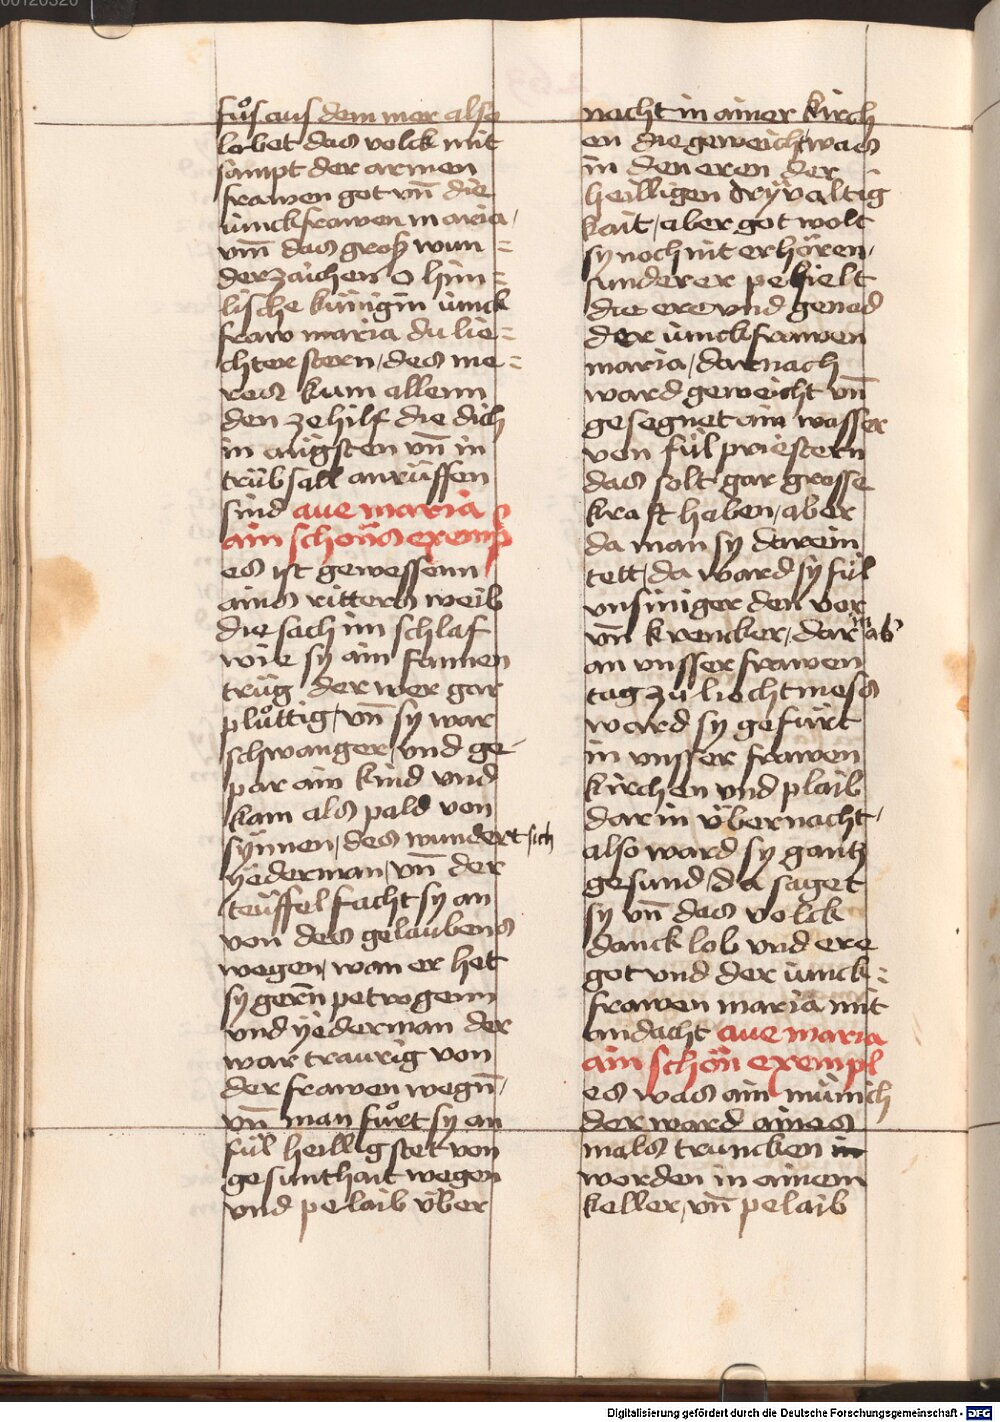 00120320
fuͦs aus dem mer also
lobet das volck mit
sampt der armen
frawen got vn̄ die
iunckfrawen maria,
vm̄ das groß wun=
derzaichen O him=
lische künigin iunck
fraw maria du lie=
chter stern, des me=
res kum allenn
den ze hilf die dich
in angsten vn̄ in
trübsall anrüffen
sind aue maria
ain schöns exemp
es ist gewessenn
ains ritters weib
die sach im schlaf
wie sy ain fannen
trüg der wer gar
pluͦttig, vn̄ sy war
schwanger, vnd ge-
par ain kind vnd
kam als pald von
synnen, des wundert sich
yederman, vn̄ der
teüffel facht sy an
von des gelaubens
wegen, wan er het
sy gern̄ petrogenn
vnd yederman der
war traurig von
der frawen wegn̄,
vn̄ man fuͦrt sy an
fül heillig stet von
gesunthait wegen
vnd pelaib über
nacht in ainer kirch
en die geweicht was
in den eren der
heilligen dryvaltig
kait, aber got wolt
sy noch nit erhören,
sunder er pehielt
die ere vnd genad
der iunckfrawen
maria, darnach
ward geweicht vn̄
gesegnet ain wasser
von fül priestern
das solt gar grosse
kraft haben, aber
da man sy darein
tett, da ward sy fül
vnsiniger den vor
vn̄ krencker, darnab
an vnsser frawen
tag zu liechtmess
ward sy gefürt
in vnsser frawen
kirchen vnd plaib
darin übernacht,
also ward sy gantz
gesund, da saget
sy vn̄ das volck
danck lob vnd ere
got vnd der iunck=
frawen maria mit
andacht aue maria
ain schön exempl
es was ain münich
der ward aines
mals truncken in
worden in ainem
keller, vn̄ pelaib
Digitalisierung gefördert durch die Deutsche Forschungsgemeinschaft - DFG